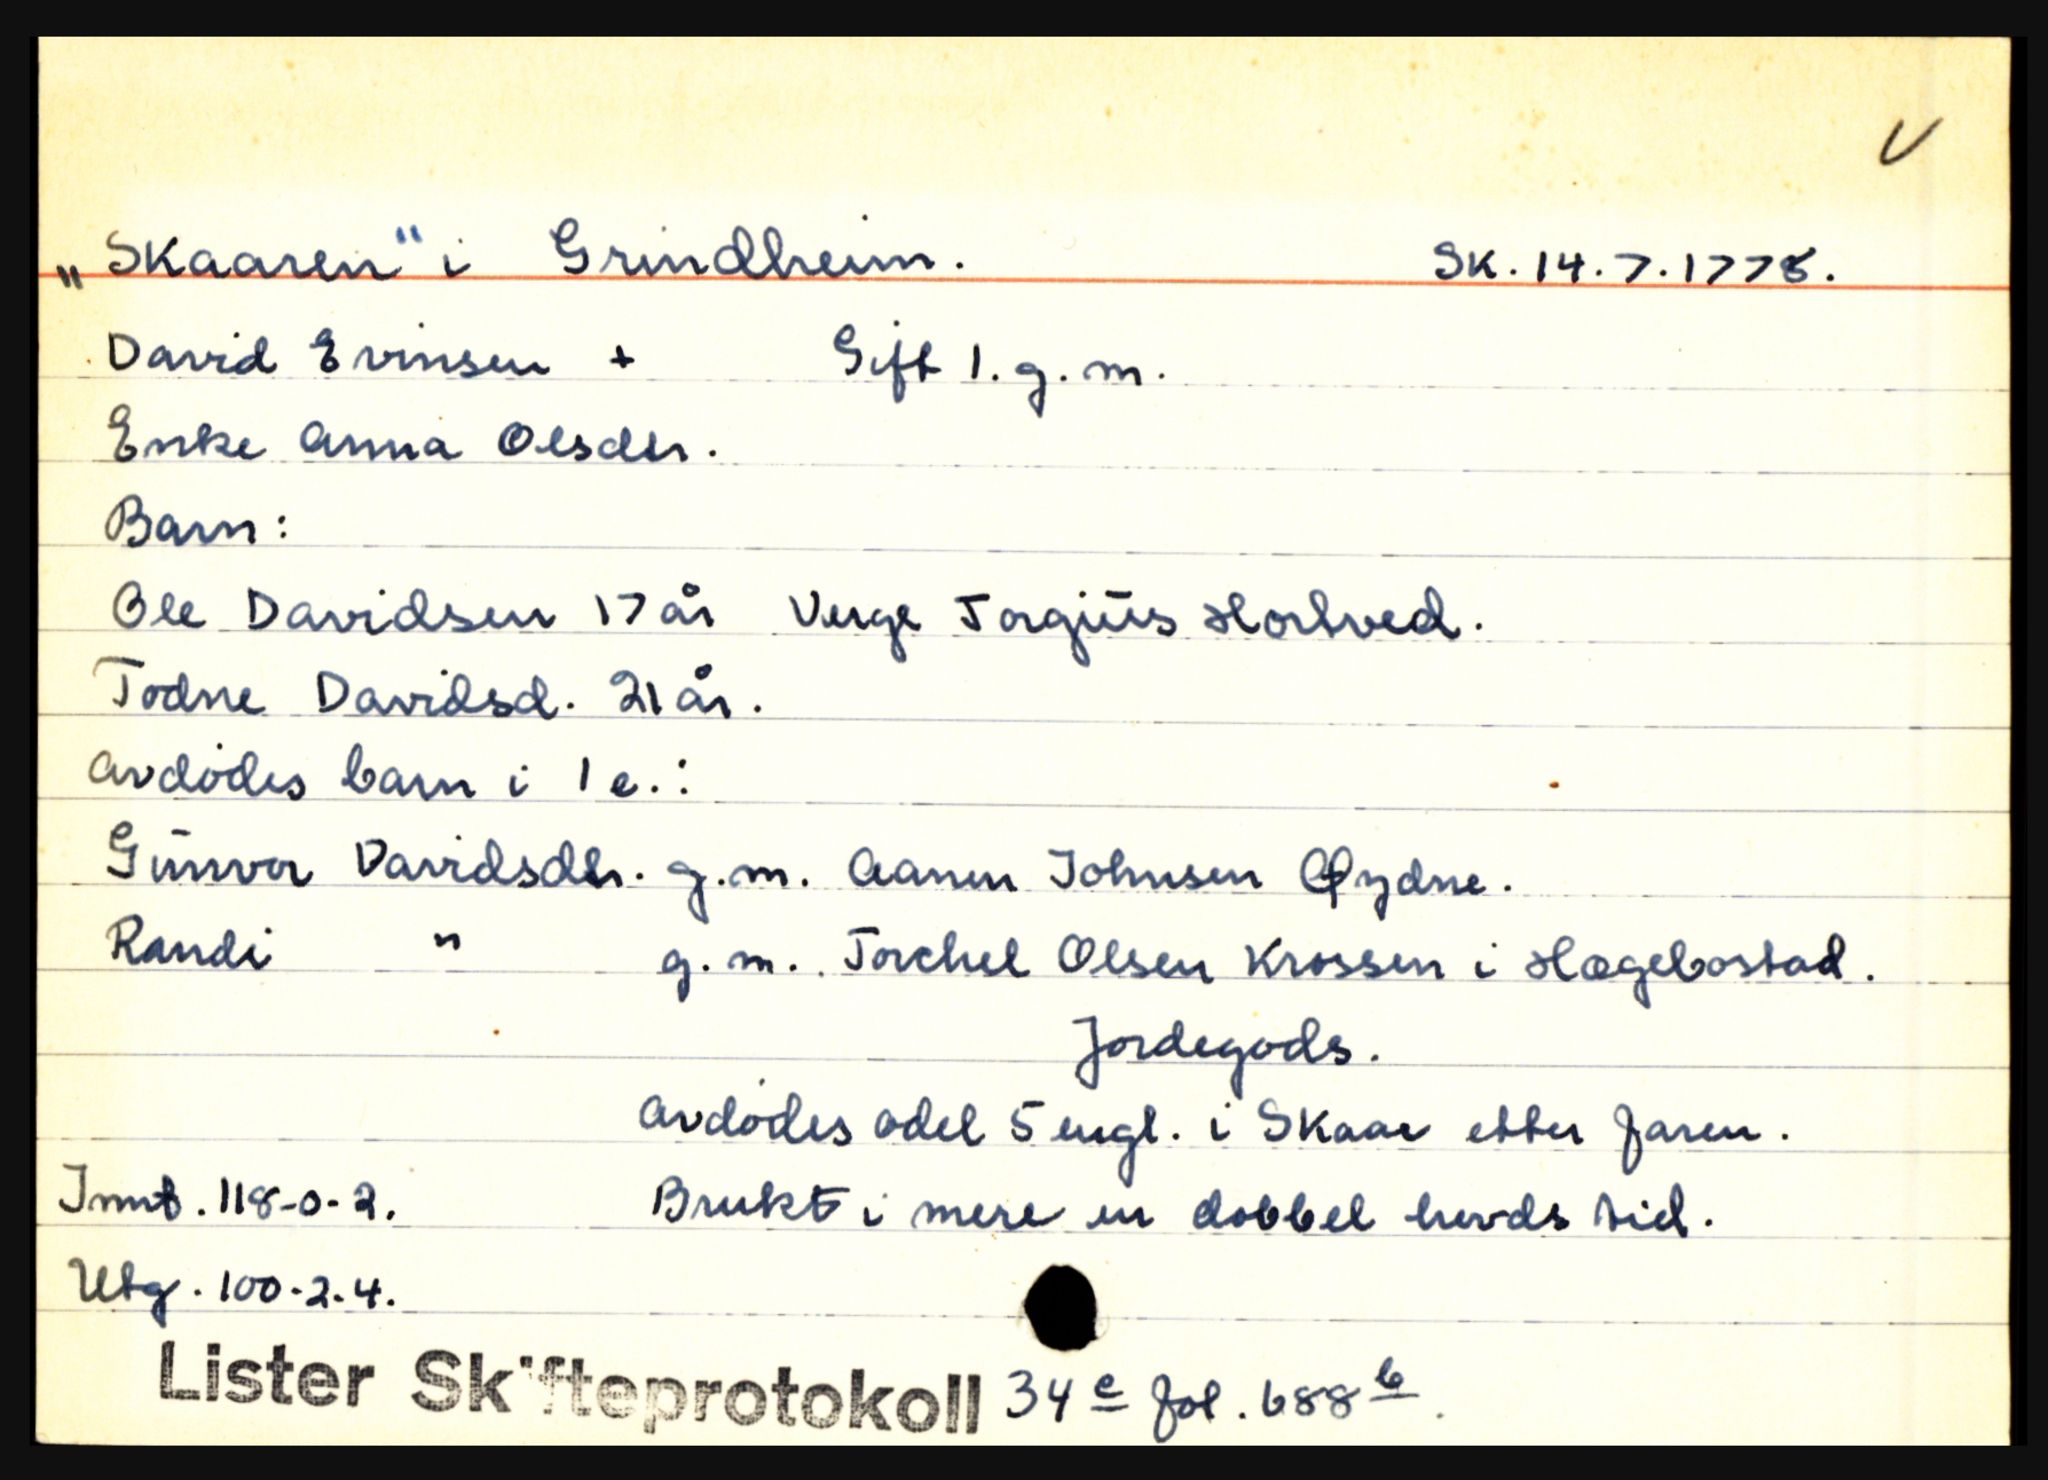 V
„Skaaren“ i Grindheim. Sk. 14.7.1778.
David Evinsen + Gift 1. g. m.
Enke Anna Olsdtr.
Barn:
Ole Davidsen 17 år Verge Torgius Hortved.
Todne Davidsd. 21 år.
Avdødes barn i 1 e.:
Gunvor Davidsdtr. g. m. Aanen Johnsen Øydne.
Randi " g. m. Torchel Olsen Krossen i Hægebostad.
Jordegods.
Avdødes odel 5 engl. i Skaar etter faren.
Innt. 118-0-2. Brukt i mere en dobbel hevds tid.
Utg. 100-2-4.
Lister Skifteprotokoll 34 c fol. 688 b.